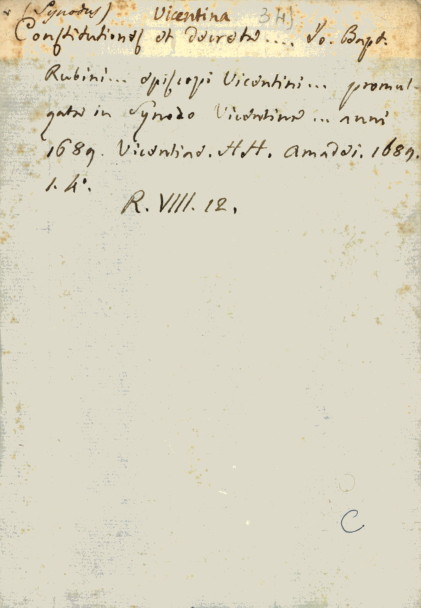 * (Synodus) Vicentina 3H)
Constitutiones et decreta.... Jo. Bapt.
Rubini... episcopi Vicentini... promul-
gata in Synodo Vicentina... anni
1689. Vicentiae. HH. Amadei. 1689.
1. 4°.
R. VIII. 12.
C